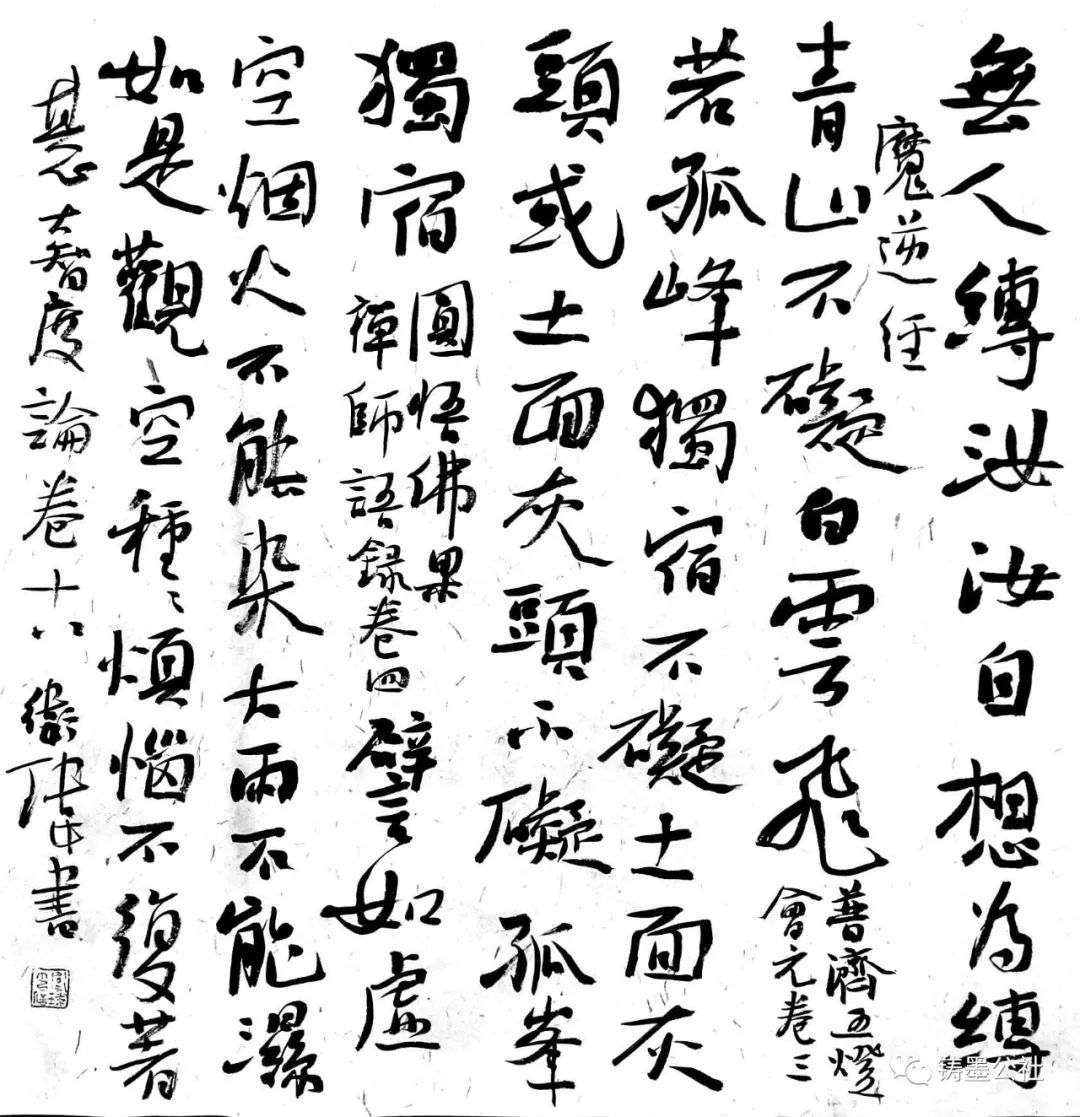 無人縛汝汝自想為縛
魔逆經
青山不礙白雲飛
普濟五燈
會元卷三
若孤峰獨宿不礙土面灰
頭或土面灰頭不礙孤峯
獨宿
圓悟佛果
禪師語錄卷四
譬如虛
空烟火不能染大雨不能濕
如是觀空種〻煩惱不復著
其心
大智度論卷十八
書
铸墨公社